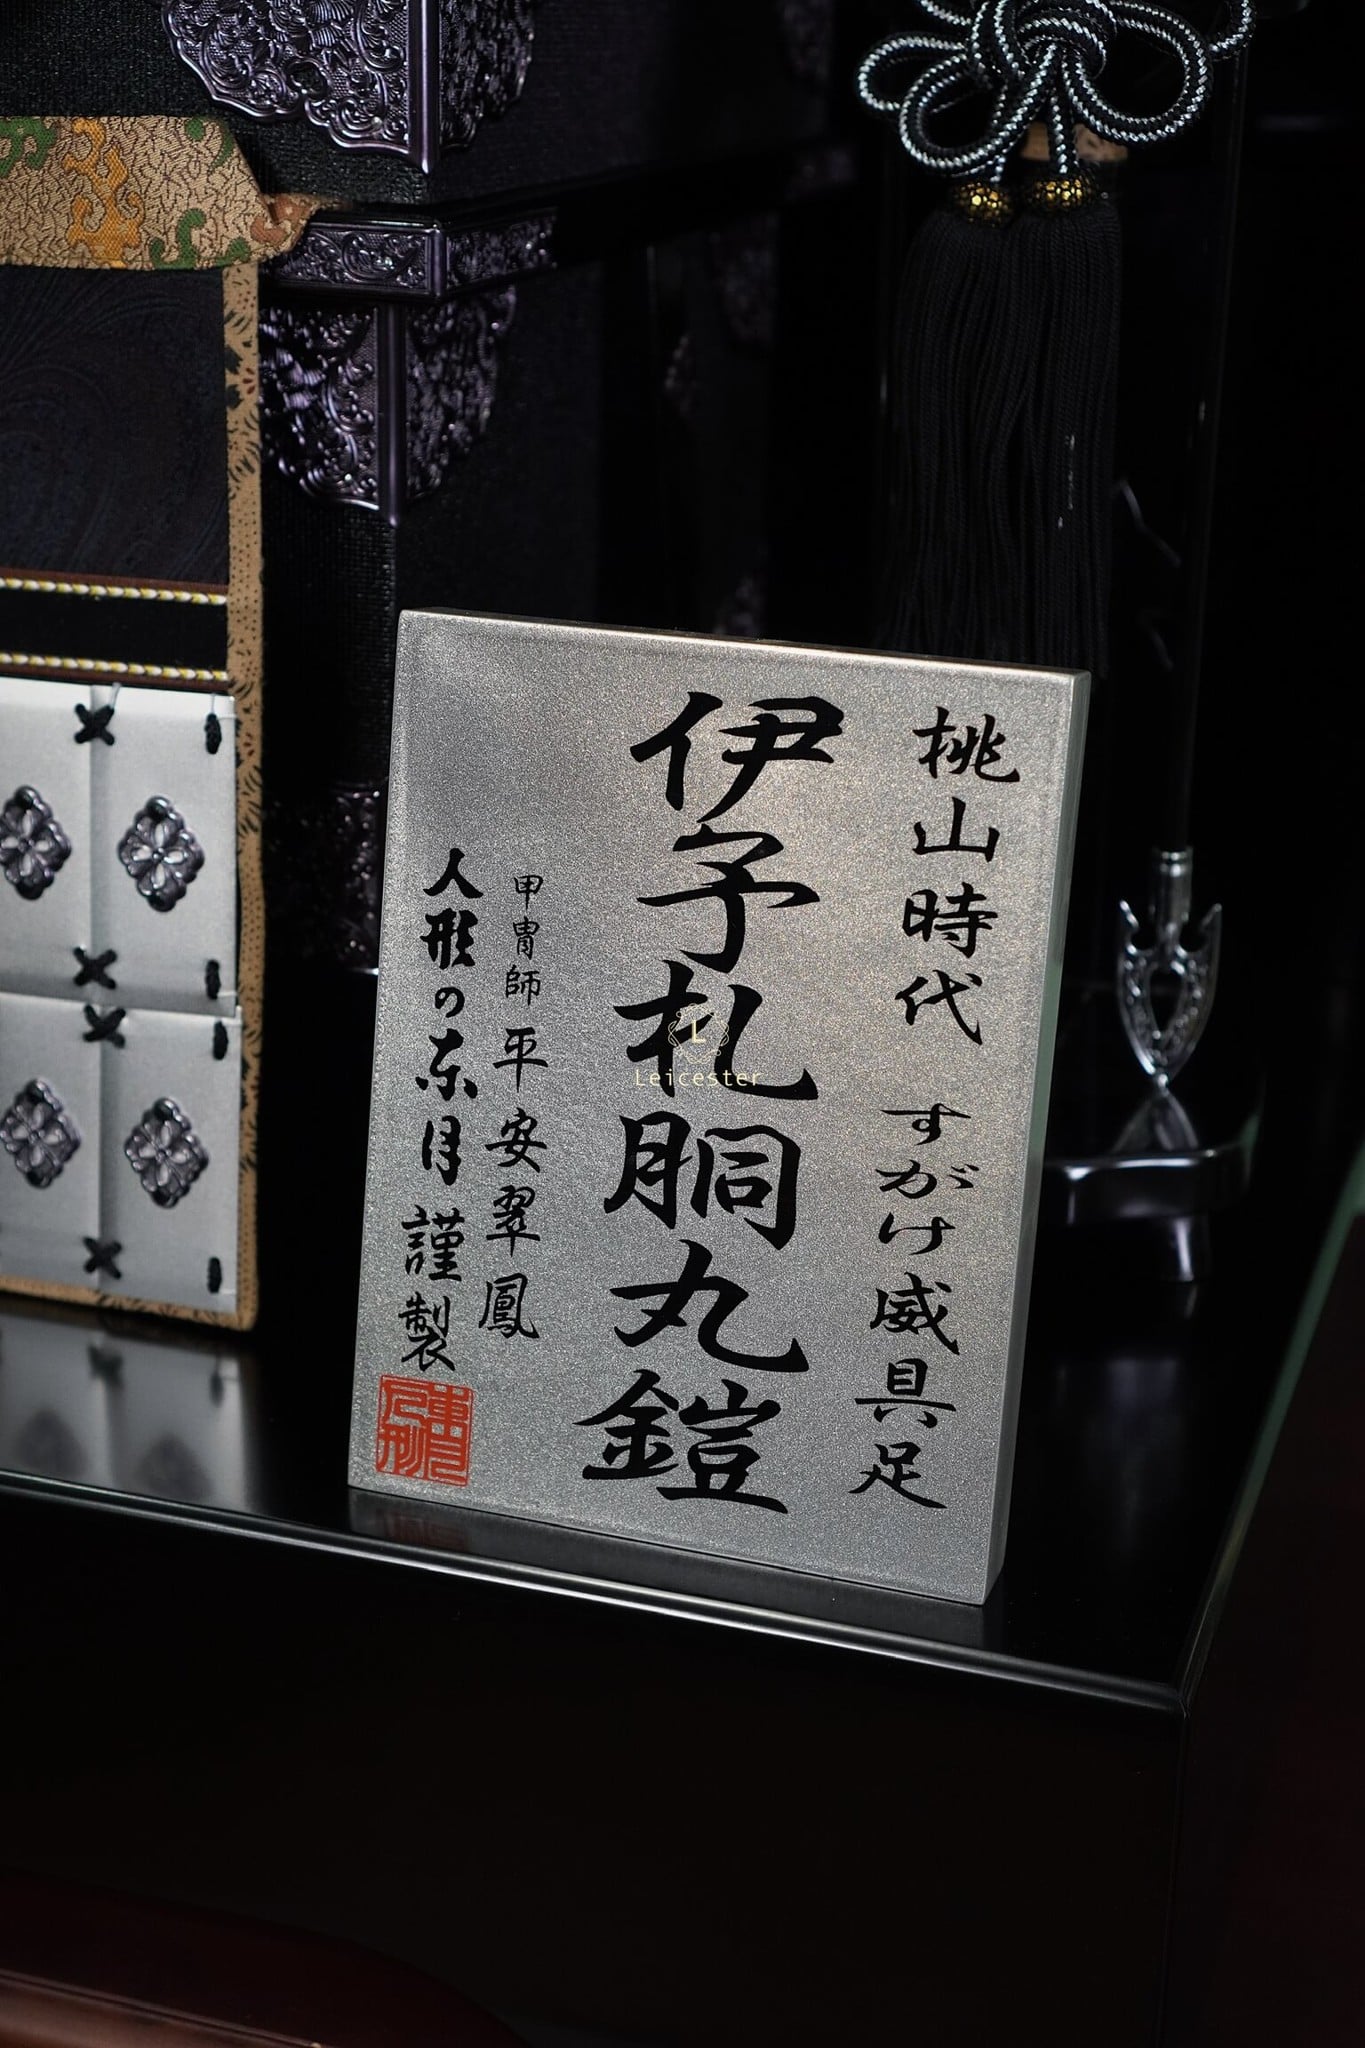 桃山時代 すがけ威具足
伊予札胴丸鎧
甲冑師 平安翠鳳
人形の東月謹製
L
Leicester